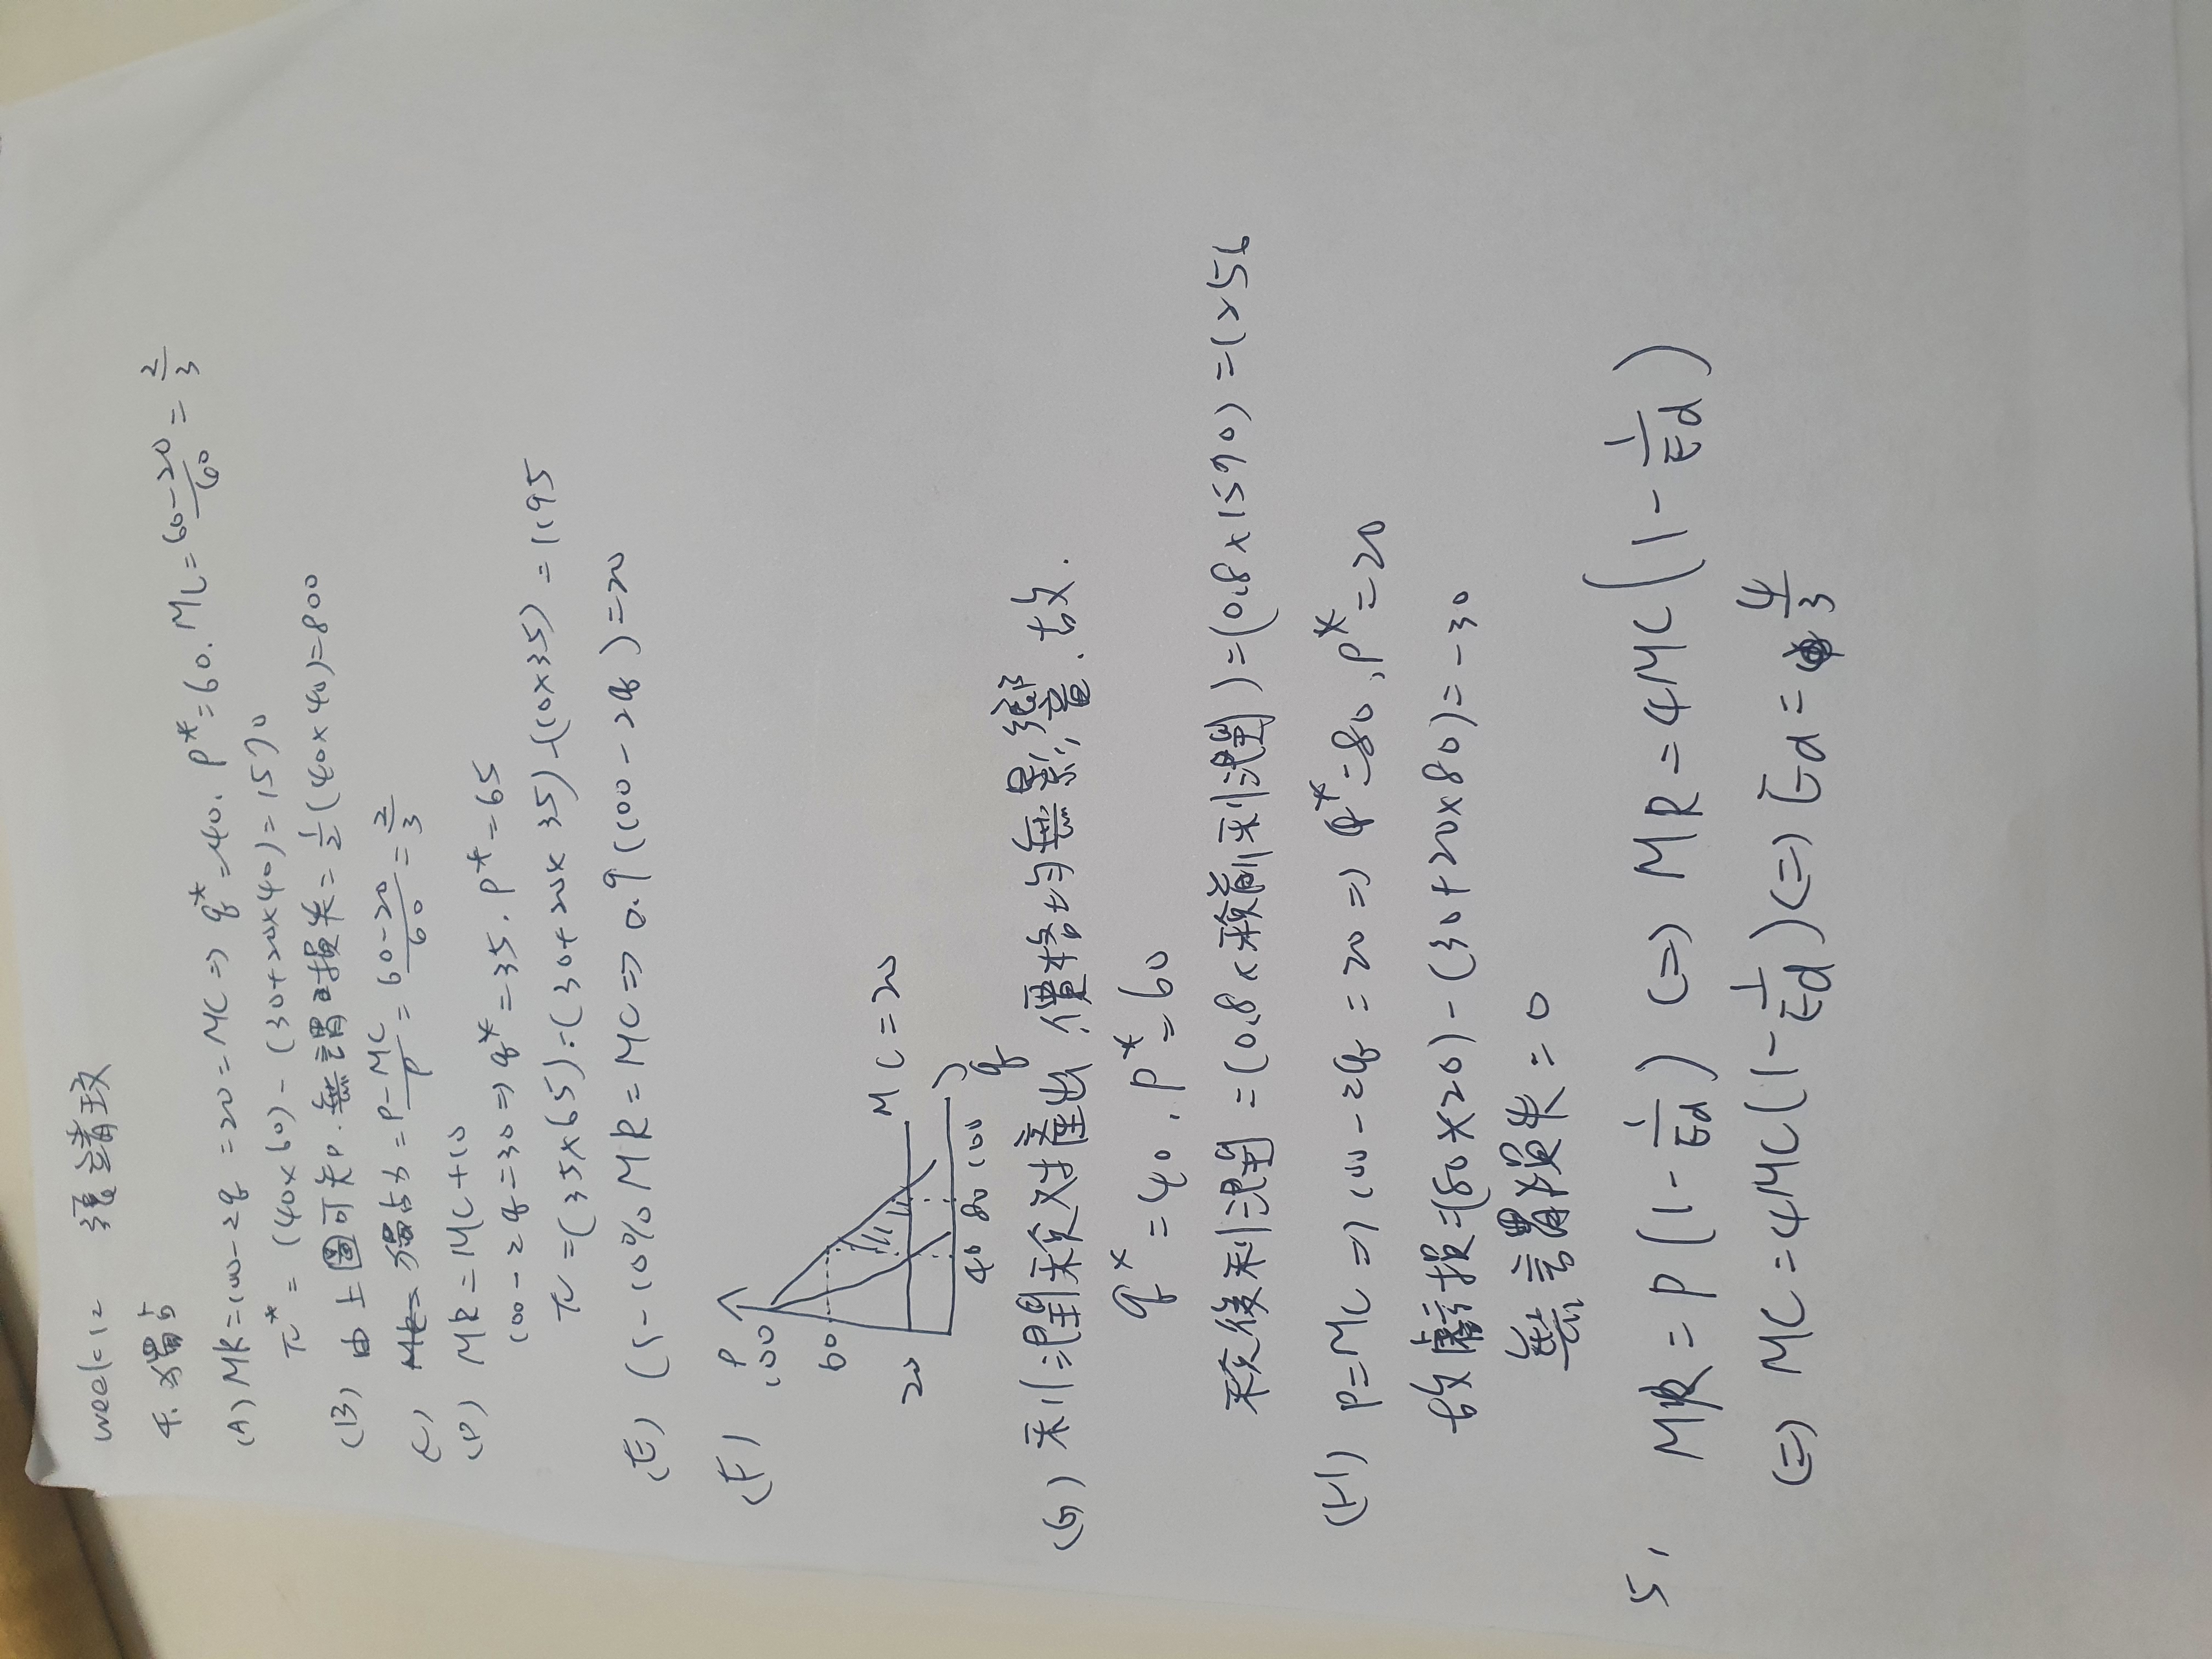 week 12 張靖玟
4. 獨占
(A) MR=100-2q =20=MC => q*=40. P*=60. ML=60-20/60=2/3
π*=(40×60)-(30+20×40)=1570
(B) 由上圖可知P.無謂損失=1/2(40×40)=800
(C) 獨占力=P-MC/P=60-20/60=2/3
(D) MR=MC+10
100-2q=30=>q*=35.P*=65
π=(35×65)-(30+20×35)-(10×35)=1195
(E) (1-10%MR=MC=>0.9(100-2q)=20
(F) P
100
60
20
MC=20
40 80 100
q
(G) 利潤稅對產出,價格均無影響.故.
q*=40,P*=60
稅後利潤=(0.8×稅前利潤)=(0.8×1570)=1256
(H) P=MC=>100-2q=20=>q*=80,P*=20
故虧損=(80×20)-(30+20×80)=-30
無謂損失=0
5, MR=P(1-1/Ed) (=> MR=4MC(1-1/Ed)
(=> MC=4MC(1-1/Ed)(=> Ed=4/3